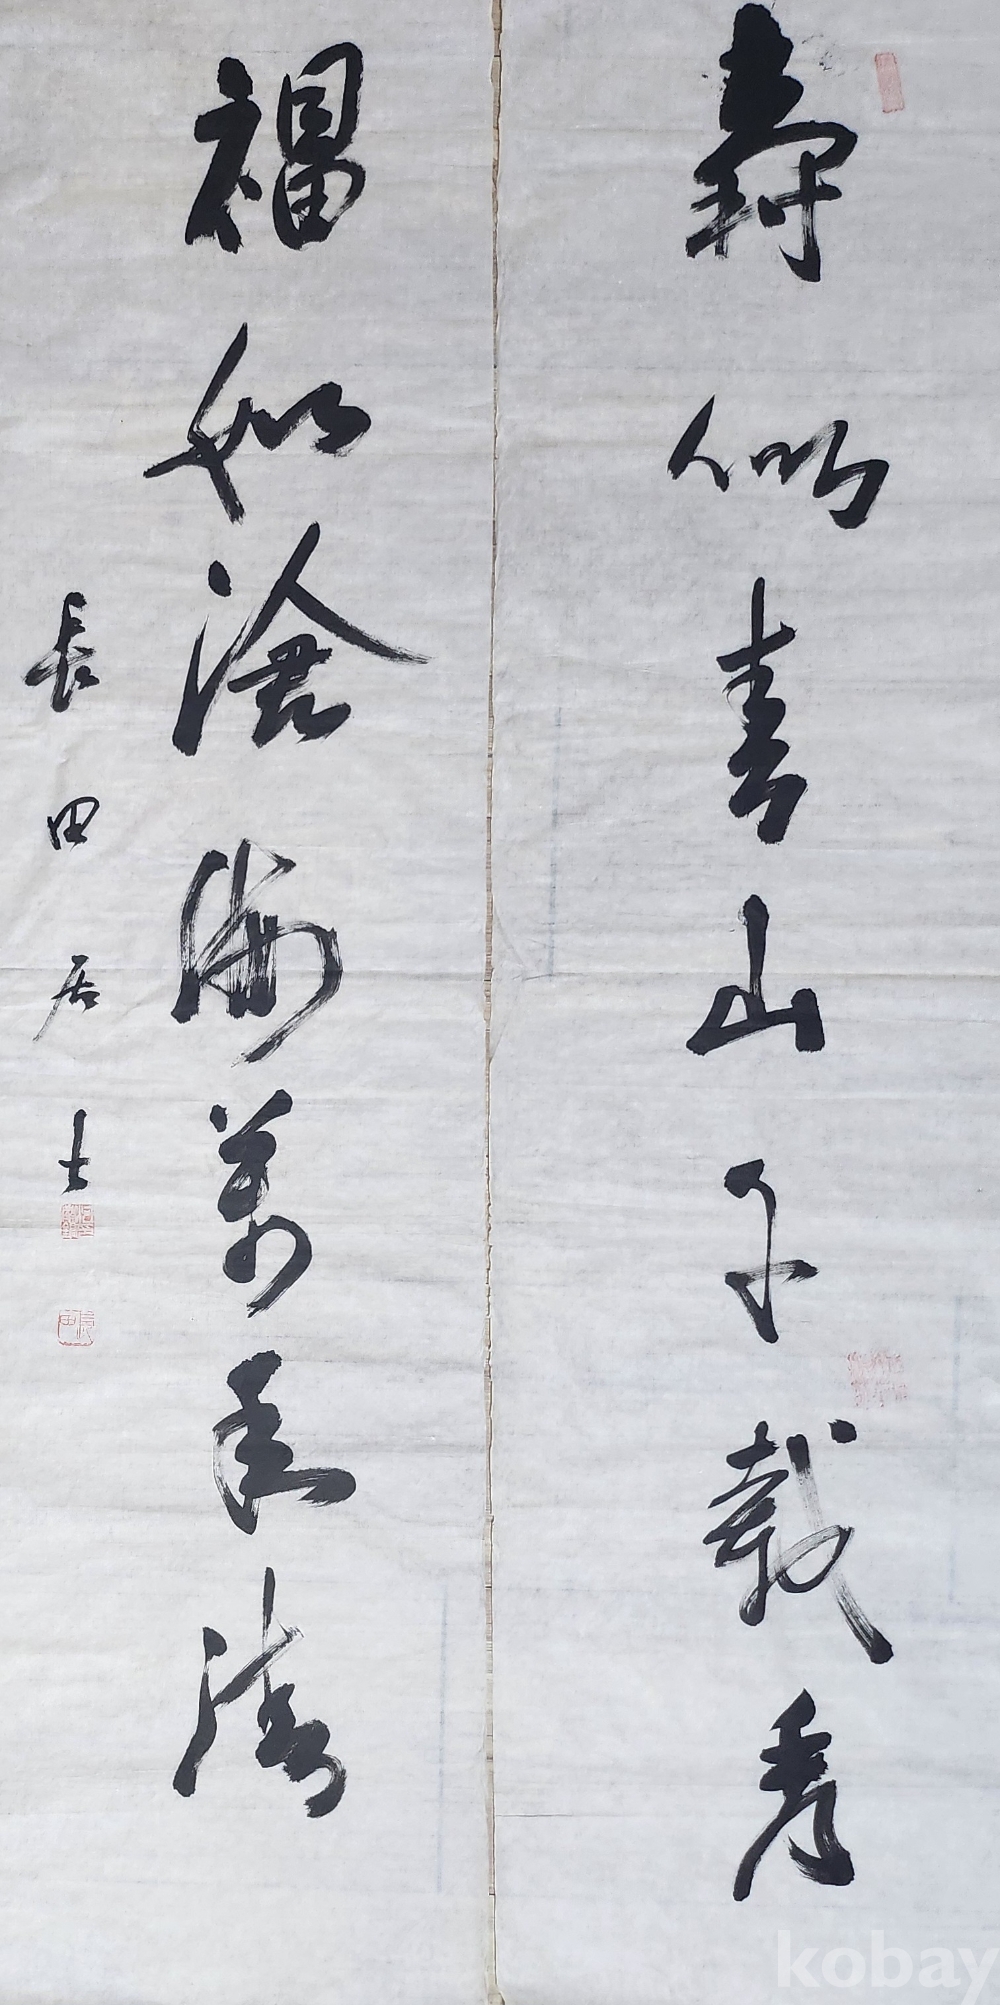 壽似青山千載秀
福如滄海萬年清
長田居士
kobay